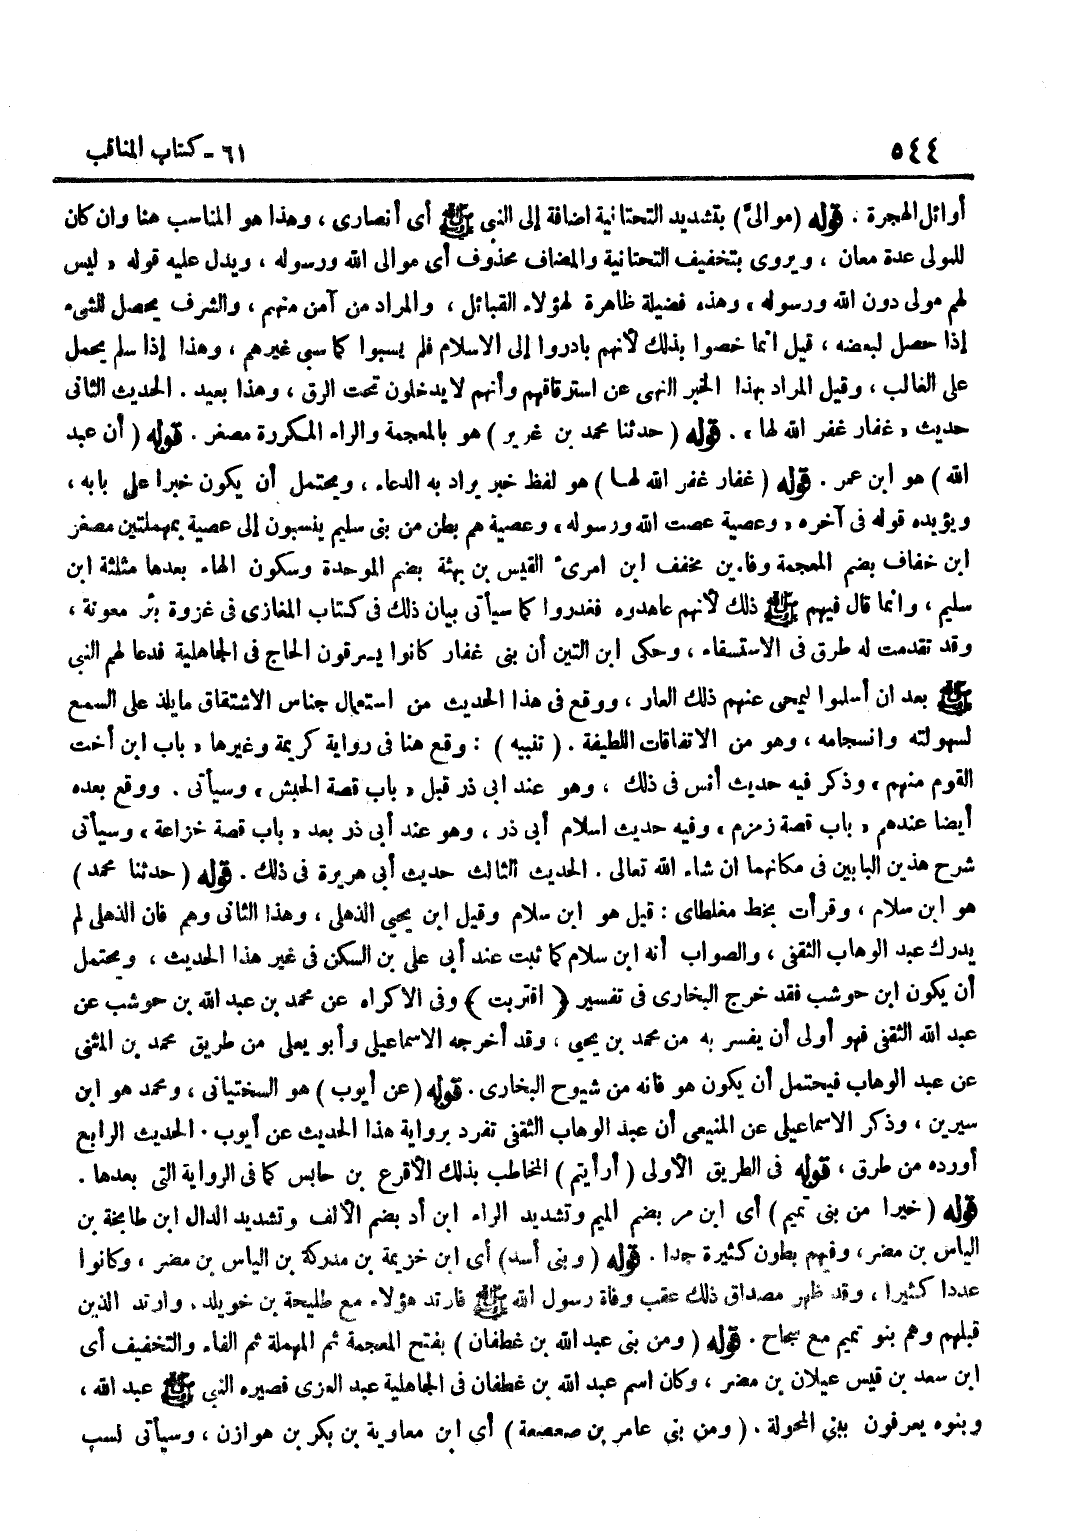 ٥٤٤
٦١ - كتاب المناقب
أوائل الهجرة . قوله (موالىّ) بتشديد التحتانية اضافة إلى النبي ﷺ أى أنصارى ، وهذا هو المناسب هنا وان كان
للمولى عدة معان ، ويروى بتخفيف التحتانية والمضاف محذوف أى موالى الله ورسوله ، ويدل عليه قوله « ليس
لهم مولى دون الله ورسوله » وهذه فضيلة ظاهرة لهؤلاء القبائل ، والمراد من آمن منهم ، والشرف يحصل للشىء
إذا حصل لبعضه ، قيل انما خصوا بذلك لأنهم بادروا إلى الاسلام فلم يسبوا كما سبى غيرهم ، وهذا إذا سلم يحمل
على الغالب ، وقيل المراد بهذا الخبر النهى عن استرقاقهم وأنهم لا يدخلون تحت الرق ، وهذا بعيد . الحديث الثانى
حديث « غفار غفر الله لها » . قوله ( حدثنا محمد بن غرير ) هو بالمعجمة والراء المكررة مصغر . قوله ( أن عبد
الله ) هو ابن عمر . قوله ( غفار غفر الله لهـا ) هو لفظ خبر يراد به الدعاء ، ويحتمل أن يكون خبرا على بابه ،
ويؤيده قوله فى آخره « وعصية عصت الله ورسوله » وعصية هم بطن من بنى سليم ينسبون إلى عصية بمهملتين مصغر
ابن خفاف بضم المعجمة وفاءين مخفف ابن امرىء القيس بن بهثة بضم الموحدة وسكون الهاء بعدها مثلثة ابن
سليم ، وانما قال فيهم ﷺ ذلك لأنهم عاهدوه فغدروا كما سيأتى بيان ذلك فى كتاب المغازى فى غزوة بئر معونة ،
وقد تقدمت له طرق فى الاستسقاء ، وحكى ابن التين أن بنى غفار كانوا يسرقون الحاج فى الجاهلية فدعا لهم النبي
ﷺ بعد ان أسلموا ليمحى عنهم ذلك العار ، ووقع فى هذا الحديث من استعمال جناس الاشتقاق مايلذ على السمع
لسهولته وانسجامه ، وهو من الاتفاقات اللطيفة . ( تنبيه ) : وقع هنا فى رواية كريمة وغيرها « باب ابن أخت
القوم منهم » وذكر فيه حديث أنس فى ذلك ، وهو عند ابى ذر قبل « باب قصة الحبش » وسيأتى . ووقع بعده
أيضا عندهم « باب قصة زمزم » وفيه حديث اسلام أبى ذر ، وهو عند أبى ذر بعد « باب قصة خزاعة » وسيأتى
شرح هذين البابين فى مكانهما ان شاء الله تعالى . الحديث الثالث حديث أبى هريرة فى ذلك . قوله ( حدثنا محمد )
هو ابن سلام ، وقرأت بخط مغلطاى : قيل هو ابن سلام وقيل ابن يحيى الذهلى ، وهذا الثانى وهم فان الذهلى لم
يدرك عبد الوهاب الثقفى ، والصواب أنه ابن سلام كما ثبت عند أبى على بن السكن فى غير هذا الحديث ، ويحتمل
أن يكون ابن حوشب فقد خرج البخارى فى تفسير ﴿ اقتربت ﴾ وفى الاكراه عن محمد بن عبد الله بن حوشب عن
عبد الله الثقفى فهو أولى أن يفسر به من محمد بن يحيى ، وقد أخرجه الاسماعيلى وأبو يعلى من طريق محمد بن المثنى
عن عبد الوهاب فيحتمل أن يكون هو فانه من شيوح البخارى . قوله ( عن أيوب ) هو السختيانى ، ومحمد هو ابن
سيرين ، وذكر الاسماعيلى عن المنيعى أن عبد الوهاب الثقفى تفرد برواية هذا الحديث عن أيوب . الحديث الرابع
أورده من طرق ، قوله فى الطريق الأولى ( أرأيتم ) المخاطب بذلك الأقرع بن حابس كما فى الرواية التى بعدها .
قوله ( خيرا من بنى تميم ) أى ابن مر بضم الميم وتشديد الراء ابن أد بضم الألف وتشديد الدال ابن طابخة بن
الياس بن مضر ، وفيهم بطون كثيرة جدا . قوله ( وبنى أسد) أى ابن خزيمة بن مدركة بن الياس بن مضر ، وكانوا
عددا كثيرا ، وقد ظهر مصداق ذلك عقب وفاة رسول الله ﷺ فارتد هؤلاء مع طليحة بن خويلد ، وارتد الذين
قبلهم وهم بنو تميم مع سجاح . قوله ( ومن بنى عبد الله بن غطفان ) بفتح المعجمة ثم المهملة ثم الفاء والتخفيف أى
ابن سعد بن قيس عيلان بن مضر ، وكان اسم عبد الله بن غطفان فى الجاهلية عبد العزى فصيره النبي ﷺ عبد الله ،
وبنوه يعرفون ببنى المحولة . ( ومن بنى عامر بن صعصعة ) أى ابن معاوية بن بكر بن هوازن ، وسيأتى نسب